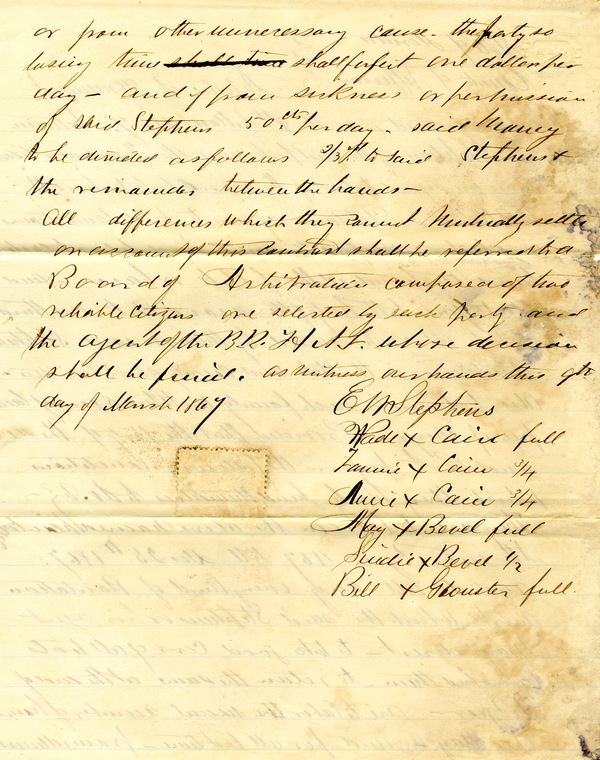 or from other unnecessary cause - the party so
losing time shall time shall forfeit one dollar per
day - and if from sickness or permission
of said Stephens 50 cts per day - said Money
to be divided as follows 2/3 to said Stephens &
the remainder between the hands -
All differences which they cannot Mutually settle
on account of this contract shall be referred to a
Board of Arbitration composed of two
reliable Citizens one selected by each party and
the agent of the B. R. F & A. L. whose decision
shall be final. as witness our hands this 9th
day of March 1867
E W Stephens
Wade x Cain full
Fannie x Cain 3/4
Annie x Cain 3/4
May x Bevel full
Lindie x Bevel 1/2
Bill x Glouster full